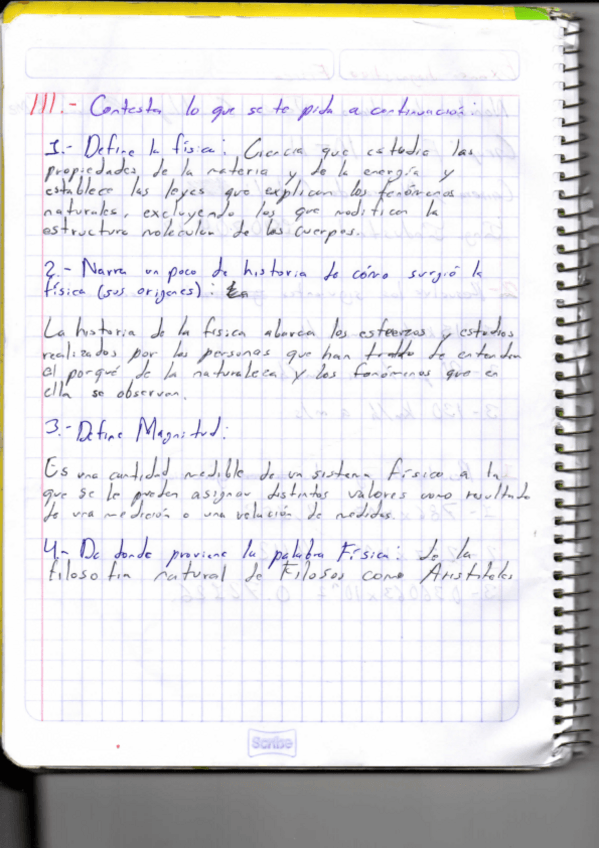 III.- Contesta lo que se te pida a continuación:
1.- Define la física: Ciencia que estudia las
propiedades de la materia y de la energía y
establece las leyes que explican los fenómenos
naturales, excluyendo los que modifican la
estructura molecular de los cuerpos.
2.- Narra un poco de historia de cómo surgió la
física (sus origenes):
La historia de la física abarca los esfuerzos y estudios
realizados por las personas que han tratado de entender
el porqué de la naturaleza y los fenómenos que en
ella se observan.
3.- Define Magnitud:
Es una cantidad medible de un sistema físico a la
que se le pueden asignar distintos valores como resultado
de una medición o una relación de medidas.
4.- De donde proviene la palabra Física: de la
filosofía natural de Filosos como Aristiteles
Scribe